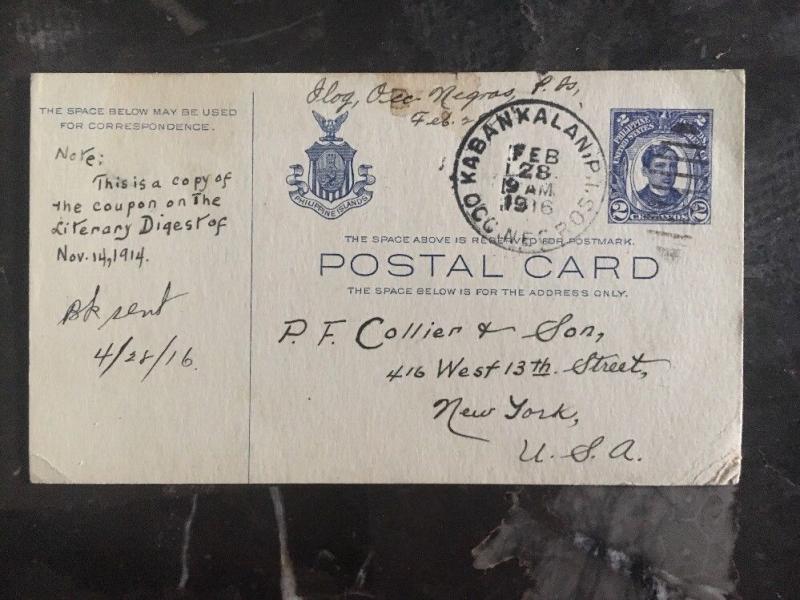 THE SPACE BELOW MAY BE USED
FOR CORRESPONDENCE.
Note:
This is a copy of
the coupon on The
Literary Digest of
Nov. 14, 1914.
Bk sent
4/28/16.
Ilog, Occ. Negros, P. Is,
Feb. 2
PHILIPPINE ISLANDS
KABANKALAN, P.I.
FEB
28
9 AM
1916
OCC. NEGROS
PHILIPPINE ISLANDS
UNITED STATES
2 CENTAVOS 2
THE SPACE ABOVE IS RESERVED FOR POSTMARK.
POSTAL CARD
THE SPACE BELOW IS FOR THE ADDRESS ONLY.
P. F. Collier & Son,
416 West 13th. Street,
New York,
U. S. A.